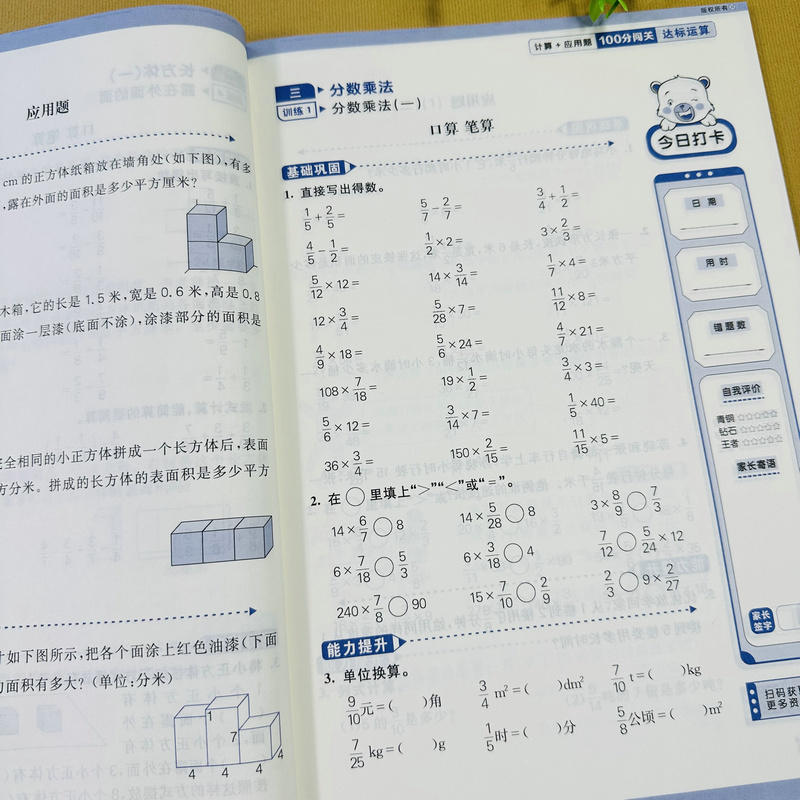 版权所有
应用题
cm的正方体纸箱放在墙角处(如下图),有多
,露在外面的面积是多少平方厘米?
木箱,它的长是1.5米,宽是0.6米,高是0.8
面涂一层漆(底面不涂),涂漆部分的面积是
完全相同的小正方体拼成一个长方体后,表面
方分米。拼成的长方体的表面积是多少平方
计如下图所示,把各个面涂上红色油漆(下面
面积有多大?(单位:分米)
1
7
4 4 4 4
计算+应用题 100分闯关 达标运算
三 分数乘法
训练1 分数乘法(一)
口算 笔算
基础巩固
1. 直接写出得数。
1/5+2/5= 5/7-2/7= 3/4+1/2=
4/5-1/2= 1/2×2= 3×2/3=
5/12×12= 14×3/14= 1/7×4=
12×3/4= 5/28×7= 11/12×8=
4/9×18= 5/6×24= 4/7×21=
108×7/18= 19×1/2= 3/4×3=
5/6×12= 3/14×7= 1/5×40=
36×3/4= 150×2/15= 11/15×5=
2. 在○里填上“>”“<”或“=”。
14×6/7○8 14×5/28○8 3×8/9○7/3
6×7/18○5/3 6×3/18○4 7/12○5/24×12
240×7/8○90 15×7/10○2/9 2/3○9×2/27
能力提升
3. 单位换算。
9/10元=( )角 3/4m²=( )dm² 7/10t=( )kg
7/25kg=( )g 1/5时=( )分 5/8公顷=( )m²
今日打卡
日期
用时
错题数
自我评价
青铜☆☆☆☆☆
钻石☆☆☆☆☆
王者☆☆☆☆☆
家长寄语
家长
签字
扫码获
更多资